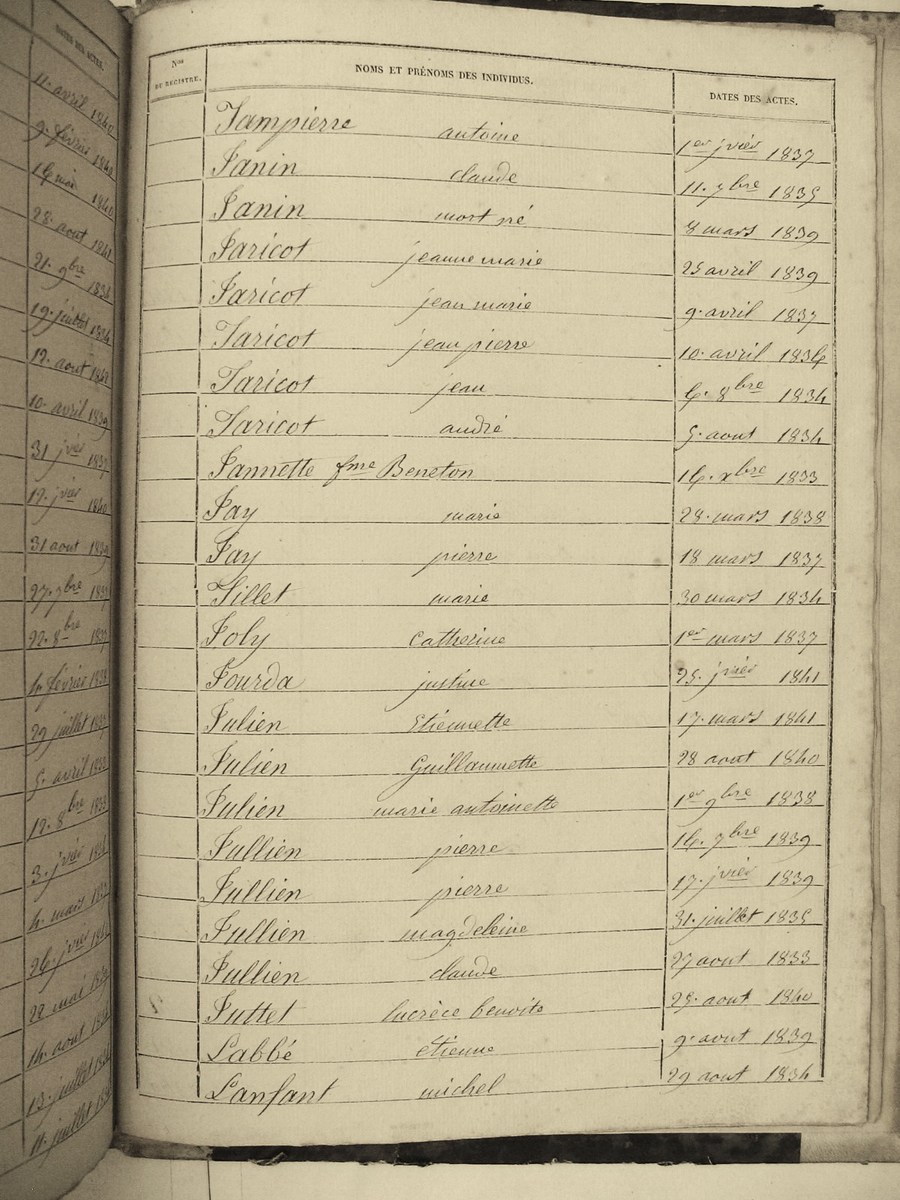 DATES DES ACTES.
11. avril 1840
9. février 1840
16 mai 1840
28. aout 1841
21. 9bre 1838
19. juillet 1834
12. aout
10 avril 1839
31 jvier 1837
12. jvier 1840
31 aout
27. 7bre
22. 8bre
4. février 1838
29 juillet
5. avril
12. 8bre
3. jvier
4. mars
26. jvier
22 mai
14. aout
13. juillet
11. juillet
Nos DU REGISTRE. NOMS ET PRÉNOMS DES INDIVIDUS. DATES DES ACTES.
Jampierre antoine 1er jvier 1837
Janin claude 11. 7bre 1835
Janin mort né 8 mars 1839
Jaricot jeanne marie 25 avril 1839
Jaricot jean marie 9. avril 1837
Jaricot jean pierre 10. avril 1836
Jaricot jean 6. 8bre 1834
Jaricot andré 5. aout 1834
Jannette fme Beneton 16. xbre 1833
Jay marie 28. mars 1838
Jay pierre 18 mars 1837
Jillet marie 30 mars 1834
Joly catherine 1er mars 1837
Jourda justine 25. jvier 1841
Julien Etiennette 17. mars 1841
Julien Guillaumette 28 aout 1840
Julien marie antoinette 1er 9bre 1838
Jullien pierre 16. 7bre 1839
Jullien pierre 17. jvier 1839
Jullien magdeleine 31. juillet 1835
Jullien claude 27 aout 1833
Juttet lucrèce benoite 25. aout 1840
Labbé etienne 9. aout 1839
Lanfant michel 29 aout 1834